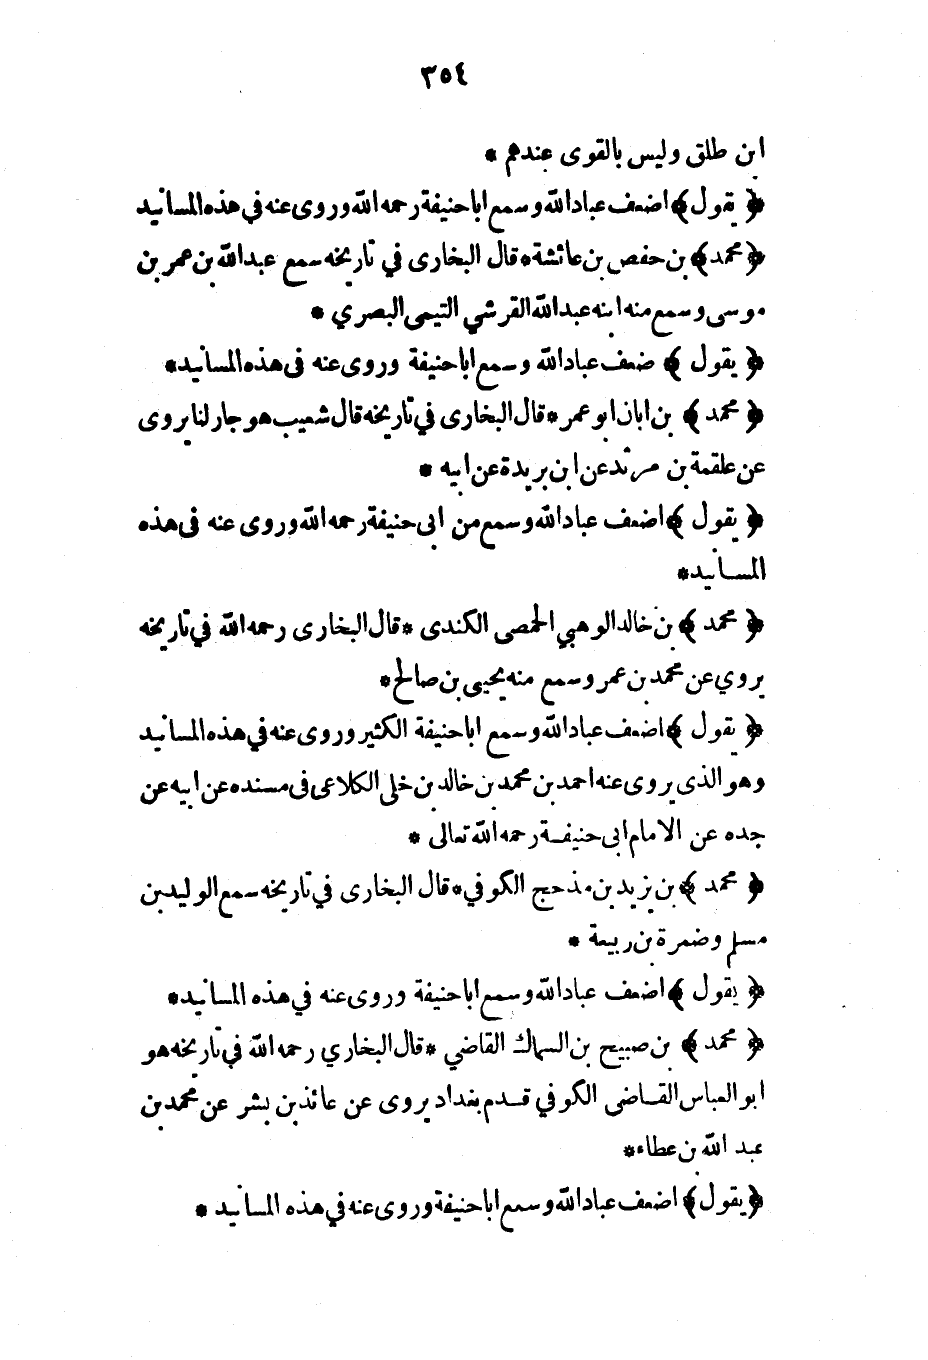 ٣٥٤
ابن طلق وليس بالقوى عندهم *
﴿ يقول ﴾ اضعف عباد الله وسمع ابا حنيفة رحمه الله وروى عنه في هذه المسانيد
﴿ محمد ﴾ بن حفص بن عائشة * قال البخارى في تاريخه سمع عبد الله بن عمر بن
موسى وسمع منه ابنه عبد الله القرشي التيمى البصري *
﴿ يقول ﴾ ضعف عباد الله وسمع ابا حنيفة وروى عنه فى هذه المسانيد *
﴿ محمد ﴾ بن ابان ابو عمر * قال البخارى في تاريخه قال شعيب هو جار لنا يروى
عن علقمة بن مرثد عن ابن بريدة عن ابيه *
﴿ يقول ﴾ اضعف عباد الله وسمع من ابى حنيفة رحمه الله وروى عنه فى هذه
المسانيد *
﴿ محمد ﴾ بن خالد الوهبي الحمصى الكندى * قال البخارى رحمه الله في تاريخه
يروي عن محمد بن عمر وسمع منه يحيى بن صالح *
﴿ يقول ﴾ اضعف عباد الله وسمع ابا حنيفة الكثير وروى عنه في هذه المسانيد
وهو الذى يروى عنه احمد بن محمد بن خالد بن خلى الكلاعى فى مسنده عن ابيه عن
جده عن الامام ابى حنيفة رحمه الله تعالى *
﴿ محمد ﴾ بن يزيد بن مذحج الكوفي * قال البخارى في تاريخه سمع الوليد بن
مسلم وضمرة بن ربيعة *
﴿ يقول ﴾ اضعف عباد الله وسمع ابا حنيفة وروى عنه في هذه المسانيد *
﴿ محمد ﴾ بن صبيح بن السماك القاضي * قال البخاري رحمه الله في تاريخه هو
ابو العباس القاضى الكوفي قدم بغداد يروى عن عائذ بن بشر عن محمد بن
عبد الله بن عطاء *
﴿ يقول ﴾ اضعف عباد الله وسمع ابا حنيفة وروى عنه في هذه المسانيد *